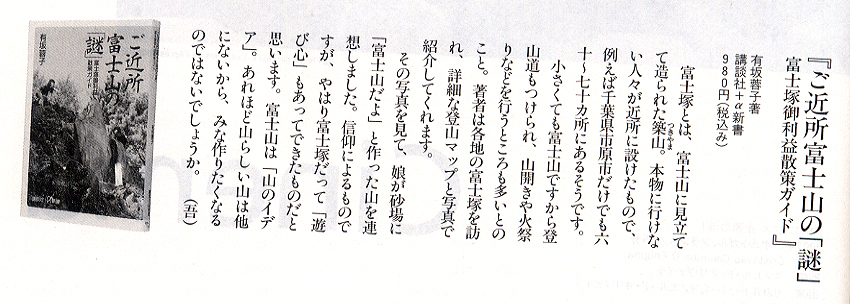 『ご近所富士山の「謎」
富士塚御利益散策ガイド』
有坂蓉子著
講談社+α新書
980円(税込み)
富士塚とは、富士山に見立て
て造られた築山。本物に行けな
つきやま
い人々が近所に設けたもので、
例えば千葉県市原市だけでも六
十〜七十カ所にあるそうです。
小さくても富士山ですから登
山道もつけられ、山開きや火祭
りなどを行うところも多いとの
こと。著者は各地の富士塚を訪
れ、詳細な登山マップと写真で
紹介してくれます。
その写真を見て、娘が砂場に
「富士山だよ」と作った山を連
想しました。信仰によるもので
すが、やはり富士塚だって「遊
び心」もあってできたものだと
思います。富士山は「山のイデ
ア」。あれほど山らしい山は他
にないから、みな作りたくなる
のではないでしょうか。 (吾)
有坂蓉子
ご近所
富士山の
「謎」
富士塚御利益
散策ガイド